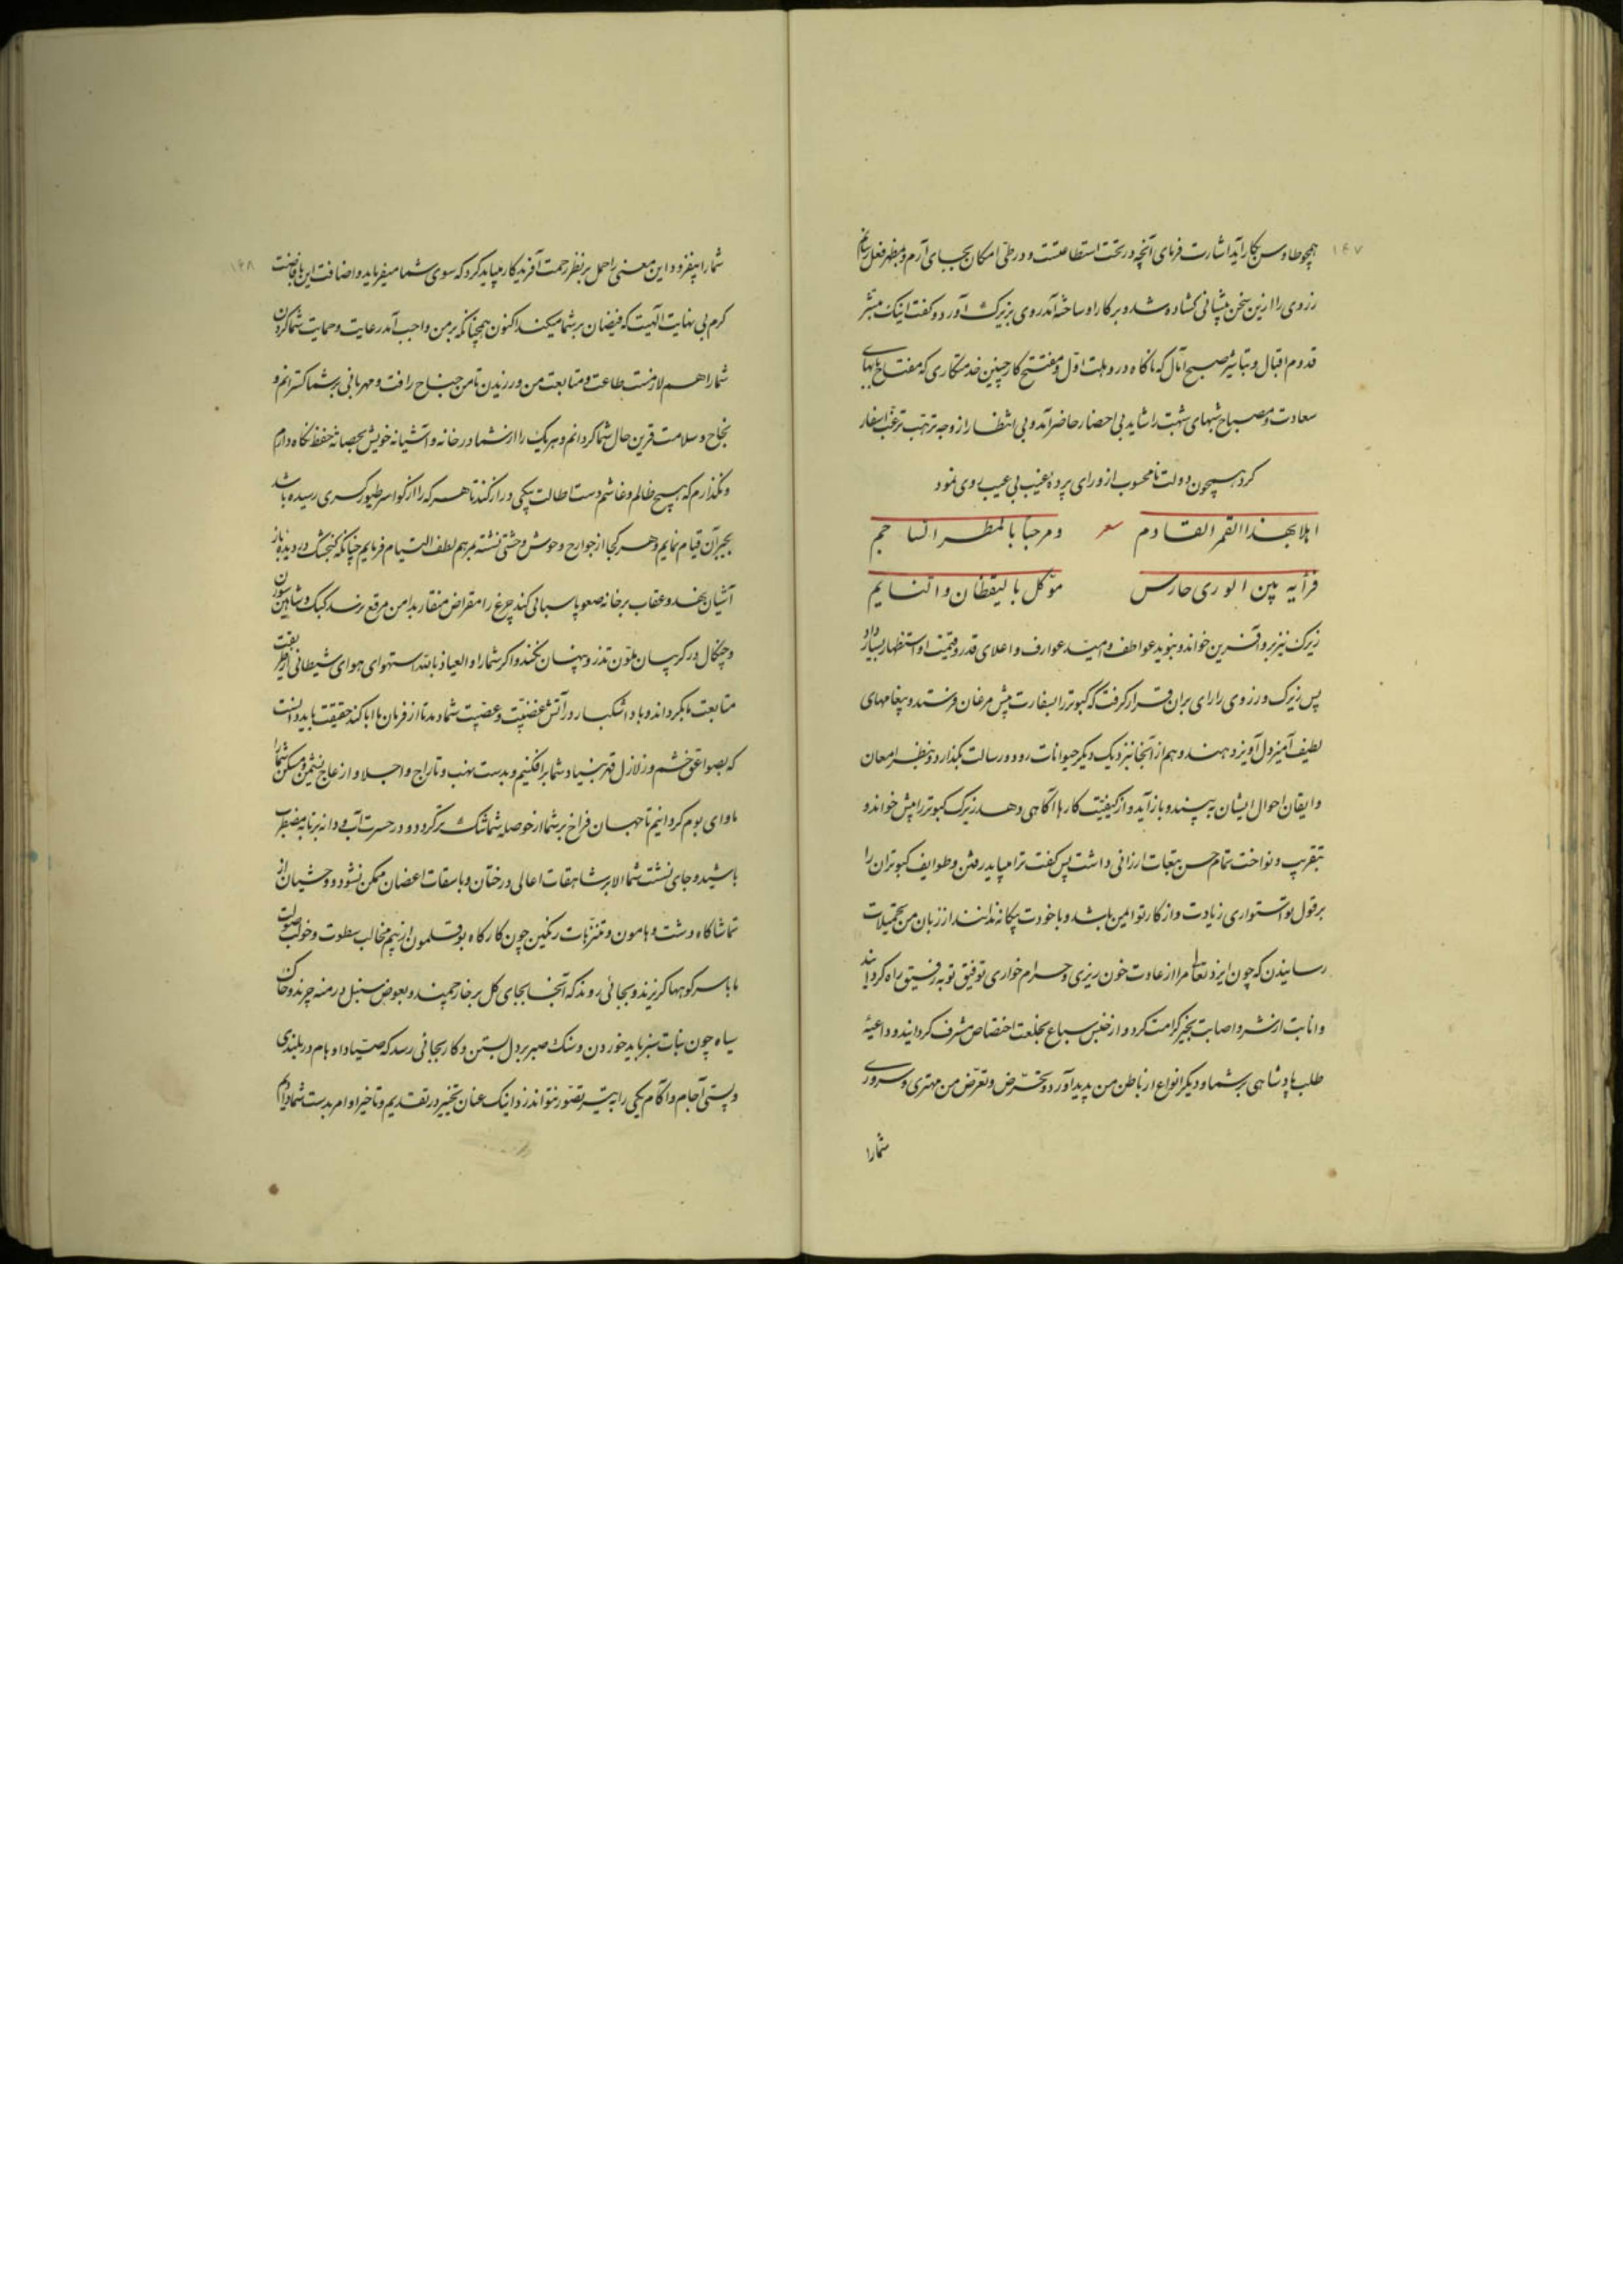 ۱۴۷
همچو طاوسن بکار آید اشارت فرمای آنچه در تحت استطاعتست و در طی امکان بجای آرم و بمظهر فعل رسانم
رزوی را ازین سخن پیشانی کشاده شد و بر کار او ساخته آمد روی بزیرک آورد و کفت اینک مبشر
قدوم اقبال و تباشیر صبح آمال که ناکاه در وهلت اول و مفتتح کار چنین خدمتکاری که مفتاح بابهای
سعادت و مصباح شبهای شبهت را شاید بی احضار حاضر آمد و بی انتظار از وجه ترهب ترغب اسفار
کرد همچون دولت نامحسوب از ورای پردۀ غیب بی عیب روی نمود
اهلا بهذا القمر القادم شعر و مرحبا بالمطر الساجم
فرأیه بین الوری حارس موکل بالیقظان و النایم
زیرک نیز برو آفرین خواند و بنوید عواطف و امید عوارف و اعلای قدر و قیمت او استظهار بسیار داد
پس زیرک و رزوی را رای بران قرار کرفت که کبوتر را بسفارت پیش مرغان فرستند و پیغامهای
لطیف آمیز دل آویز دهند و هم از آنجا بنزدیک دیکر حیوانات رود و رسالت بکذارد و بنظر امعان
و ایقان احوال ایشان به بیند و باز آید و از کیفیت کارها آکاهی دهد زیرک کبوتر را پیش خواند و
بتقریب و نواخت تمام حسن بتجات ارزانی داشت پس کفت ترا میباید رفتن و طوایف کبوتران را
بر قول تو استواری زیادت و از کار تو ایمن باشد و با خودت بیکانه ندانند از زبان من تحمیلات
رسانیدن که چون ایزد تعالی مرا از عادت خون ریزی و حرام خواری توفیق توبه رفیق راه کردانید
و انابت از شر و اصابت بخیر کرامت کرد و از جنس سباع بخلعت اختصاص مشرف کردانید و داعیۀ
طلب پادشاهی بر شما و دیکر انواع از باطن من پدید آورد و بتحرض و تعرض من مهتری و سروری
شمارا
۱۴۸
شما را بیفزود این معنی را حمل بر نظر رحمت آفریدکار میباید کرد که سوی شما میفرماید و اضافت این بافاضت
کرم بی نهایت الهیت که فیضان بر شما میکند اکنون همچنانکه بر من واجب آمد رعایت و حمایت شما کردن
شما را هم لازمست طاعت و متابعت من ورزیدن تا من جناح رافت و مهربانی بر شما کسترانم و
نجاح و سلامت قرین حال شما کردانم و هر یک را از شما در خانه و آشیانه خویش بحصانه حفظ نکاه دارم
و نکذارم که هیچ ظالم و غاشم دست اطالت بیکی دراز کند تا هر که را از کواسر طیور کسری رسیده باشد
بجبر آن قیام نمایم و هر کجا از جوارح وحوش وحشتی نشسته بمرهم لطف التیام فرمایم چنانکه کنجشک در دیدۀ باز
آشیان نهد و عقاب بر خانه صعو پاسبانی کند چرغ را مقراض منقار بدامن مرقع نرسد کبک و شاهین سوزن
و چنکال در کریبان ملون تذرو پنهان نکند و اکر شما را و العیاذ بالله استهوای هوای شیطانی از طریقت
متابعت ما بکرداند و باد استکبار در آتش غضبیت و عصبیت شما دمد تا از فرمان ما ابا کند حقیقت باید دانست
که بصواعق خشم و زلازل قهر بنیاد شما برافکنیم و بدست نهب و تاراج و اجلا و ازعاج نشیمن و مسکن شما را
ماوای بوم کردانیم تا جهان فراخ بر شما از حوصله شما تنک تر کردد و در حسرت آب و دانه بر تابه مضطرب
باشید و جای نشست شما الا بر شاهقات اعالی درختان و باسقات اغصان ممکن نشود و وحشیان از
تماشاکاه دشت و هامون و متنزهات رنکین چون کارکاه بوقلمون از بیم مخالب سطوت و خوف صولت
ما با سر کوهها کریزند و بجائی روند که آنجا بجای کل بر خار چمیند و بعوض سنبل درمنه چرند و خاک
سیاه چون نبات سبز باید خوردن و سنک صبر بر دل بستن و کار بجائی رسد که صیاد اوهام در بلندی
و پستی آجام و آکام یکی را به تیر تصور نتواند زد اینک عنان تخییر در تقدیم و تاخیر اوامر بدست شما دادم